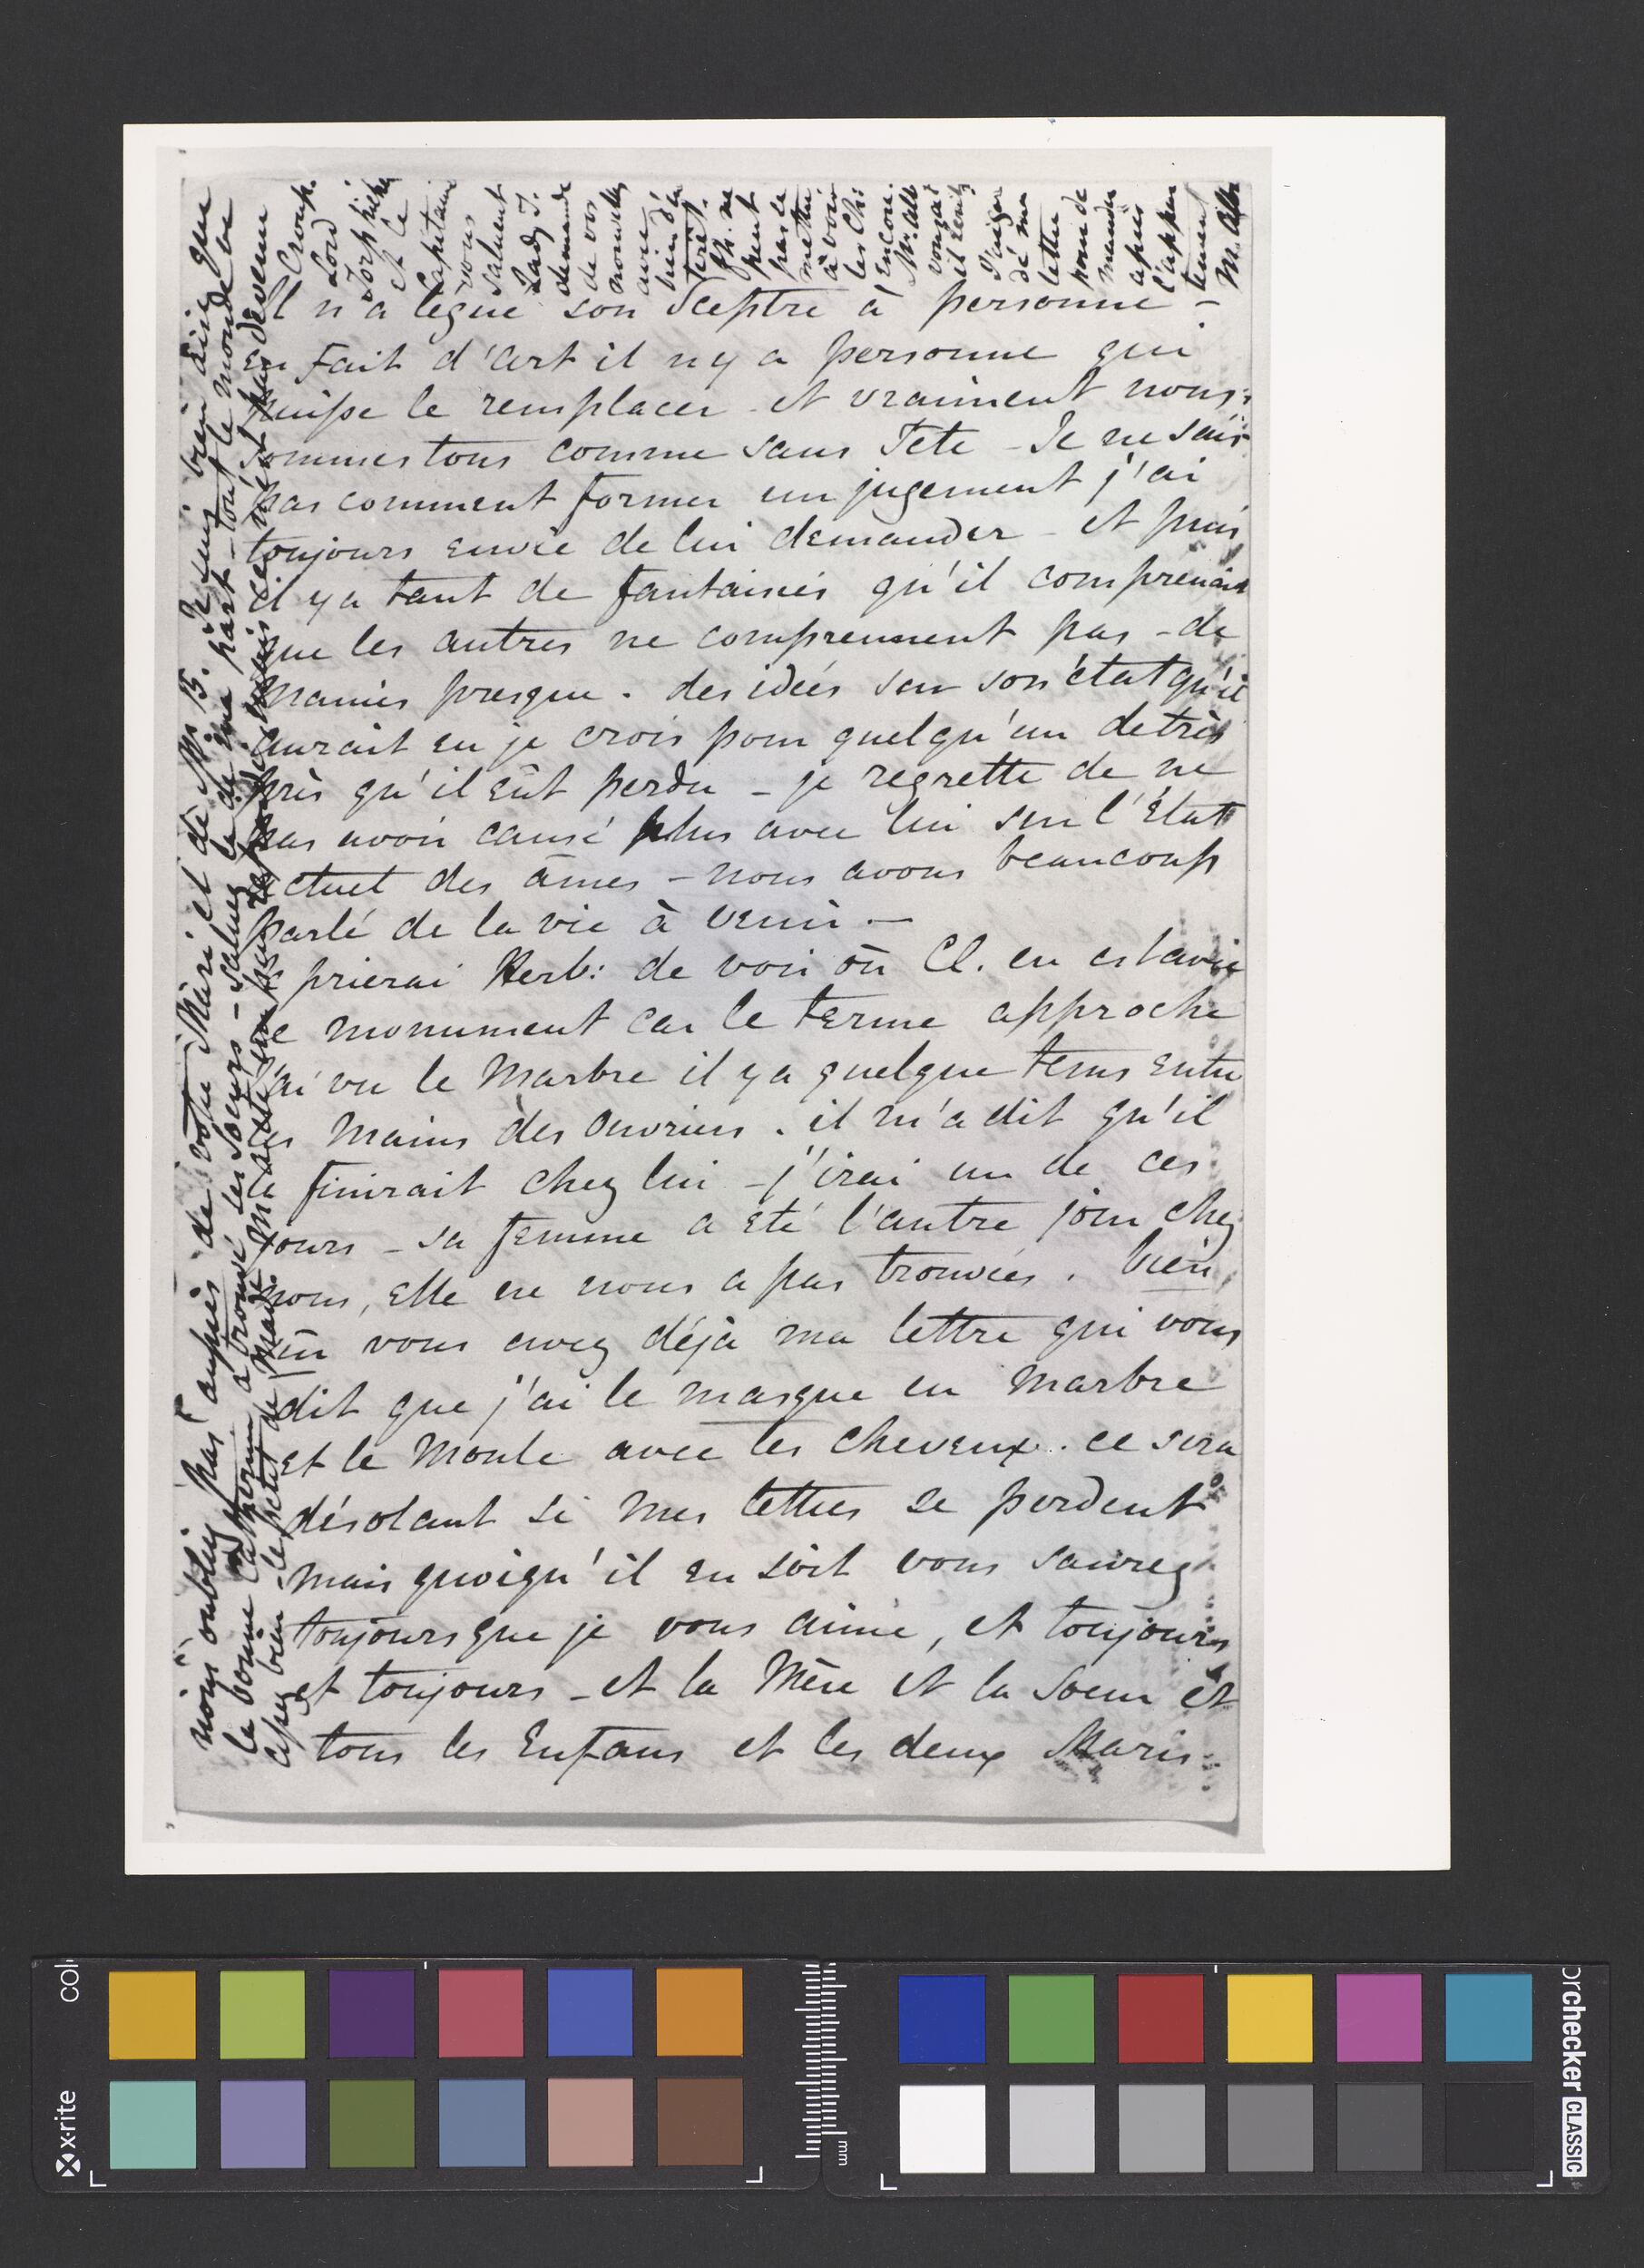 Il n'a légué son Sceptre à personne –
en fait d'art il n'y a personne qui
puisse le remplacer et vraiment nous
sommes tous comme sans Tete – Je ne sais
pas comment former un jugement j'ai
toujours envie de lui demander – et puis
il y a tant de fantaisies qu'il comprenait
que les autres ne comprennent pas – de
manies presque . des idées sur son état qu'il
aurait eu je crois pour quelqu'un de très
près qu'il eût perdu – je regrette de ne
pas avoir causé plus avec lui sur l'État
actuel des âmes – nous avons beaucoup
parlé de la vie à venir . —
prierai Herb: de voir où Cl. en est avec
le monument car le terme approche
j'ai vu le Marbre il y a quelque tems entre
les Mains des Ouvriers . il m'a dit qu'il
le finirait chez lui – j'irai un de ces
jours – sa femme a été l'autre jour chez
nous, elle ne nous a pas trouvées . bien
sûr vous avez déjà ma lettre qui vous
dit que j'ai le masque en Marbre
et le Moule avec les cheveux . ce sera
désolant si mes lettres se perdent
mais quoiqu'il en soit vous saurez
toujours que je vous aime, et toujours
et toujours – et la Mère et la Soeur et
tous les Enfans et les deux Maris
m'oubliez pas auprès de votre Mari et de Mr. 15. Je suis bien aise que
la bonne Catherine a trouvé les Soeurs – saluez la de ma part – tout le monde va
assez bien – le petit de
Croup.
Lord
Torphichen
et le
Capitaine
vous
saluent
Lady T.
demande
de vos
nouvelles
avec
bien d'in
térêt.
ne
peut
pas se
mettre
à voir
les Ch:
Encore.
il vient
dé ma
lettre
pour de
mander
après
l'appar
tement